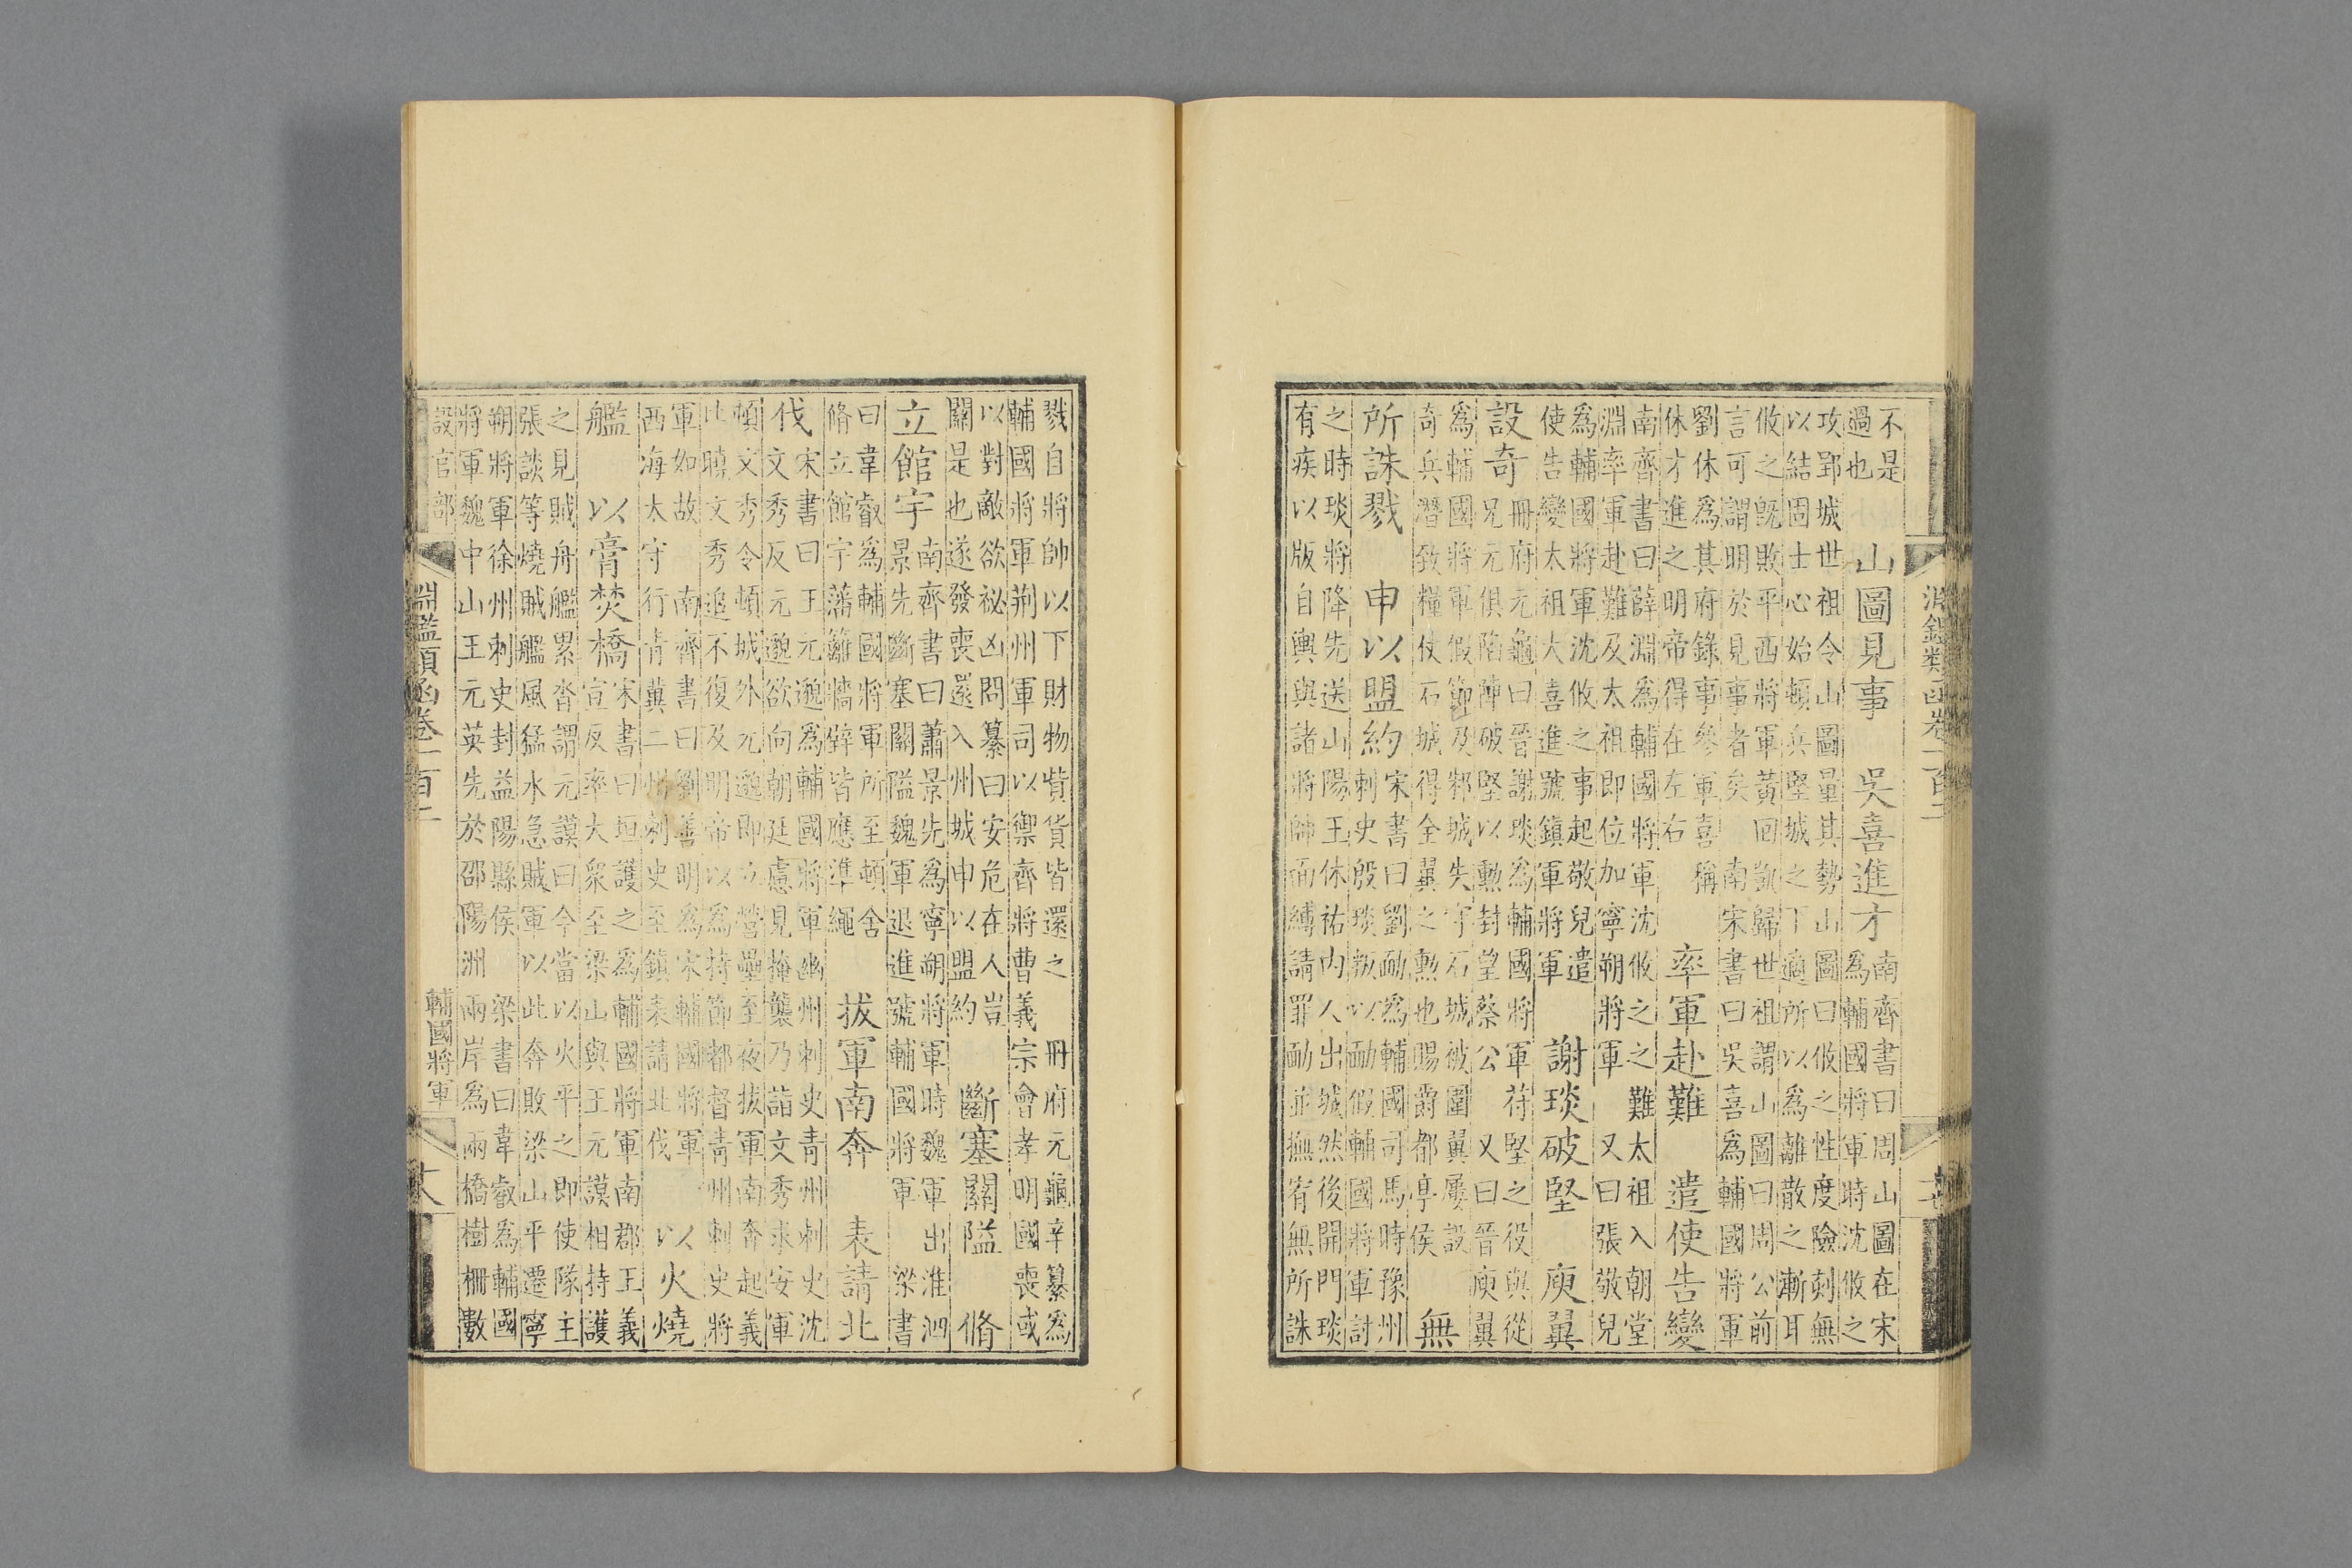 不是
過也
山圖見事
吳喜進才
南齊書曰周山圖在宋
爲輔國將軍時沈攸之
攻郢城世祖令山圖量其勢山圖曰攸之性度險刻無
以結固士心始頓兵堅城之下適所以爲離散之漸耳
攸之旣敗平西將軍黃回凱歸世祖謂山圖曰周公前
言可謂明於見事者矣
南宋書曰吳喜爲輔國將軍
劉休爲其府錄事參軍喜稱
休才進之明帝得在左右
率軍赴難
遣使告變
南齊書曰薛淵爲輔國將軍沈攸之之難太祖入朝堂
淵率軍赴難及太祖即位加寧朔將軍
又曰張敬兒
爲輔國將軍沈攸之事起敬兒遣
使告變太祖大喜進號鎮軍將軍
謝琰破堅
庾翼
設奇
冊府元龜曰晉謝琰爲輔國將軍苻堅之役與從
兄元俱陷陣破堅以勲封望蔡公
又曰晉庾翼
爲輔國將軍假節及邾城失守石城被圍翼屢設
奇兵潛致糧仗石城得全翼之勲也賜爵都亭侯
無
所誅戮
申以盟約
宋書曰劉勔爲輔國司馬時豫州
刺史殷琰叛以勔假輔國將軍討
之時琰將降先送山陽王休祐內人出城然後開門琰
有疾以版自輿與諸將帥面縛請罪勔並撫宥無所誅
戮自將帥以下財物貲貨皆還之
冊府元龜辛纂爲
輔國將軍荆州軍司以禦齊將曹義宗會孝明國喪或
以對敵欲祕凶問纂曰安危在人豈
關是也遂發喪還入州城申以盟約
斷塞關隘
脩
立館宇
南齊書曰蕭景先爲寧朔將軍時魏軍出淮泗
景先斷塞關隘魏軍退進號輔國將軍
梁書
曰韋叡爲輔國將軍所至頓舍
脩立館宇藩籬牆壁皆應準繩
拔軍南奔
表請北
伐
宋書曰王元邈爲輔國將軍幽州刺史青州刺史沈
文秀反元邈欲向朝廷慮見掩襲乃詣文秀求安軍
頓文秀令頓城外元邈即立營壘至夜拔軍南奔起義
比曉文秀追不復及明帝以爲持節都督青州刺史將
軍如故
南齊書曰劉善明爲宋輔國將軍
西海太守行青冀二州刺史至鎮表請北伐
以火燒
艦
以膏焚橋
宋書曰垣護之爲輔國將軍南郡王義
宣反率大衆至梁山與王元謨相持護
之見賊舟艦累沓謂元謨曰今當以火平之即使隊主
張談等燒賊艦風猛水急賊軍以此奔敗梁山平遷寧
朔將軍徐州刺史封益陽縣侯
梁書曰韋叡爲輔國
將軍魏中山王元英先於邵陽洲兩岸爲兩橋樹柵數
設官部
淵鑑類函卷一百二
輔國將軍